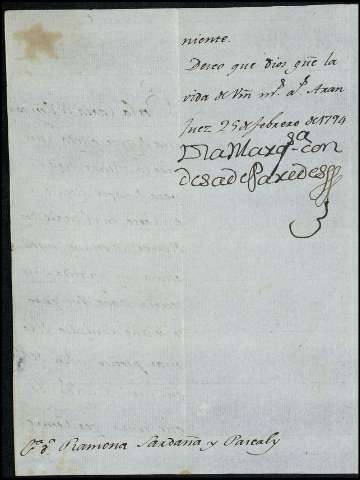 niente.
Deseo que Dios gũe la
vida de Vm m.s a.s Aran
Juez 25 de febrero de 1794
La Marq.sa con
desa de Paredes
S.ra D.a Ramona Sardaña y Pascal